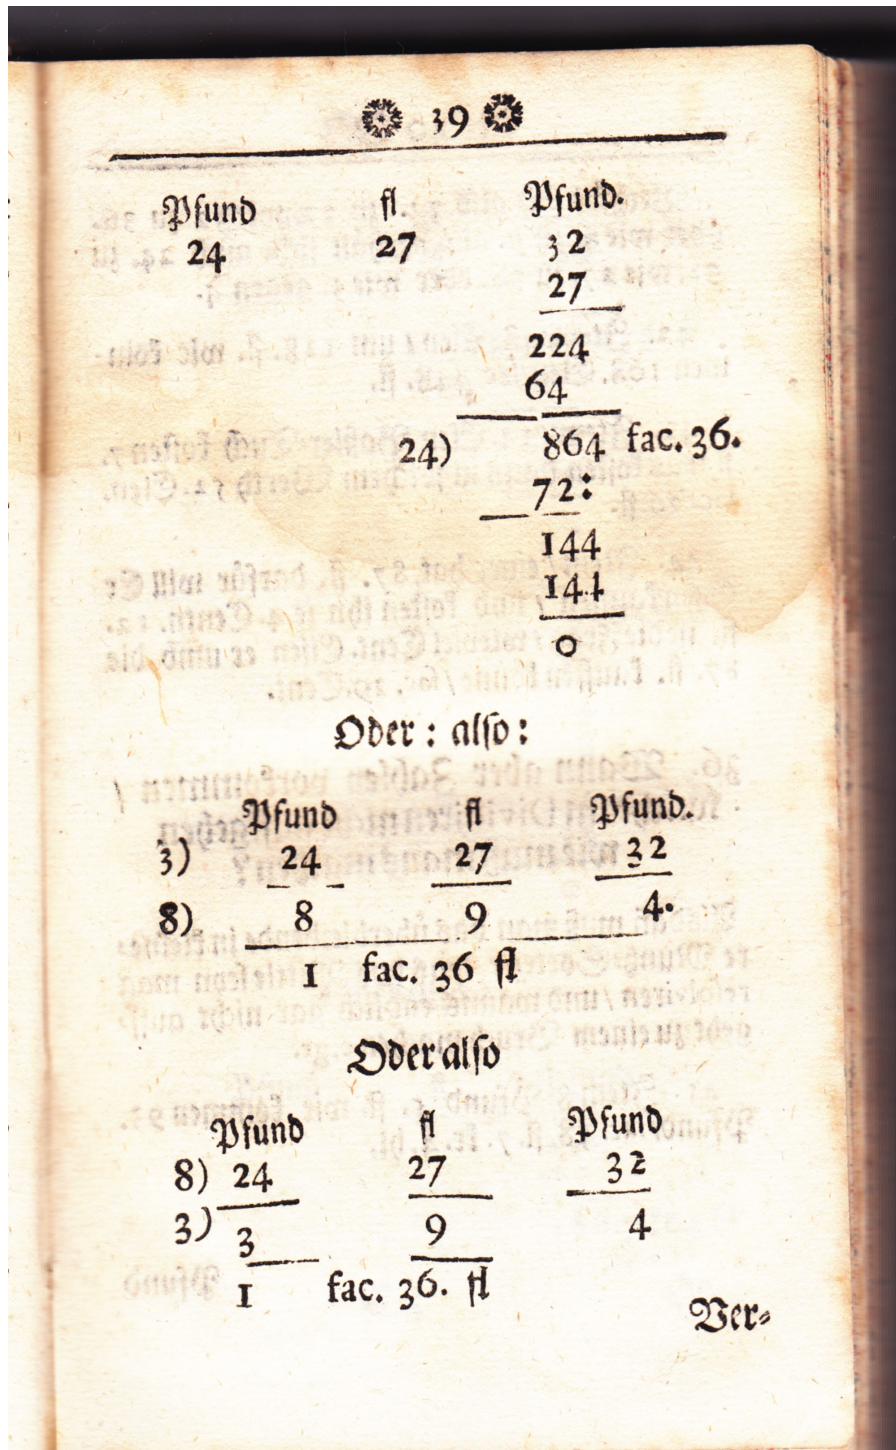 39
Pfund fl Pfund.
24 27 32
27
224
64
24) 864 fac. 36.
72:
144
144
0
Oder: also:
Pfund fl Pfund.
3) 24 27 32
8) 8 9 4.
1 fac. 36 fl
Oder also
Pfund fl Pfund
8) 24 27 32
3) 3 9 4
1 fac. 36. fl
Ver-